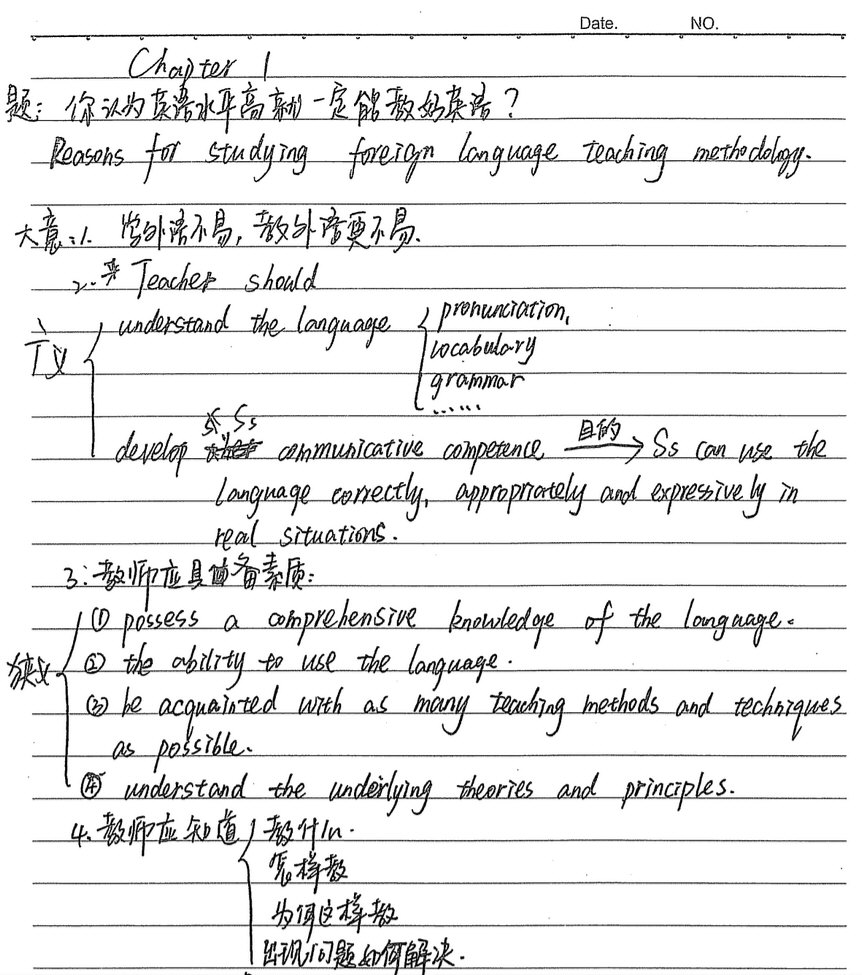 Date. NO.
Chapter 1
题: 你认为英语水平高就一定能教好英语?
Reasons for studying foreign language teaching methodology.
大意:1. 学外语不易,教外语更不易.
2. Teacher should
广义 understand the language pronunciation,
vocabulary
grammar
......
Ss
develop communicative competence 目的 Ss can use the
language correctly, appropriately and expressively in
real situations.
3: 教师应具备素质:
① possess a comprehensive knowledge of the language.
狭义 ② the ability to use the language.
③ be acquainted with as many teaching methods and techniques
as possible.
④ understand the underlying theories and principles.
4. 教师应知道 教什么.
怎样教
为何这样教
出现问题如何解决.